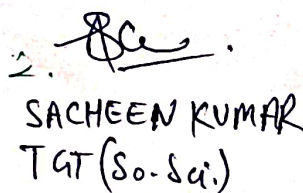 2.
SACHEEN KUMAR
TGT (So. Sci.)